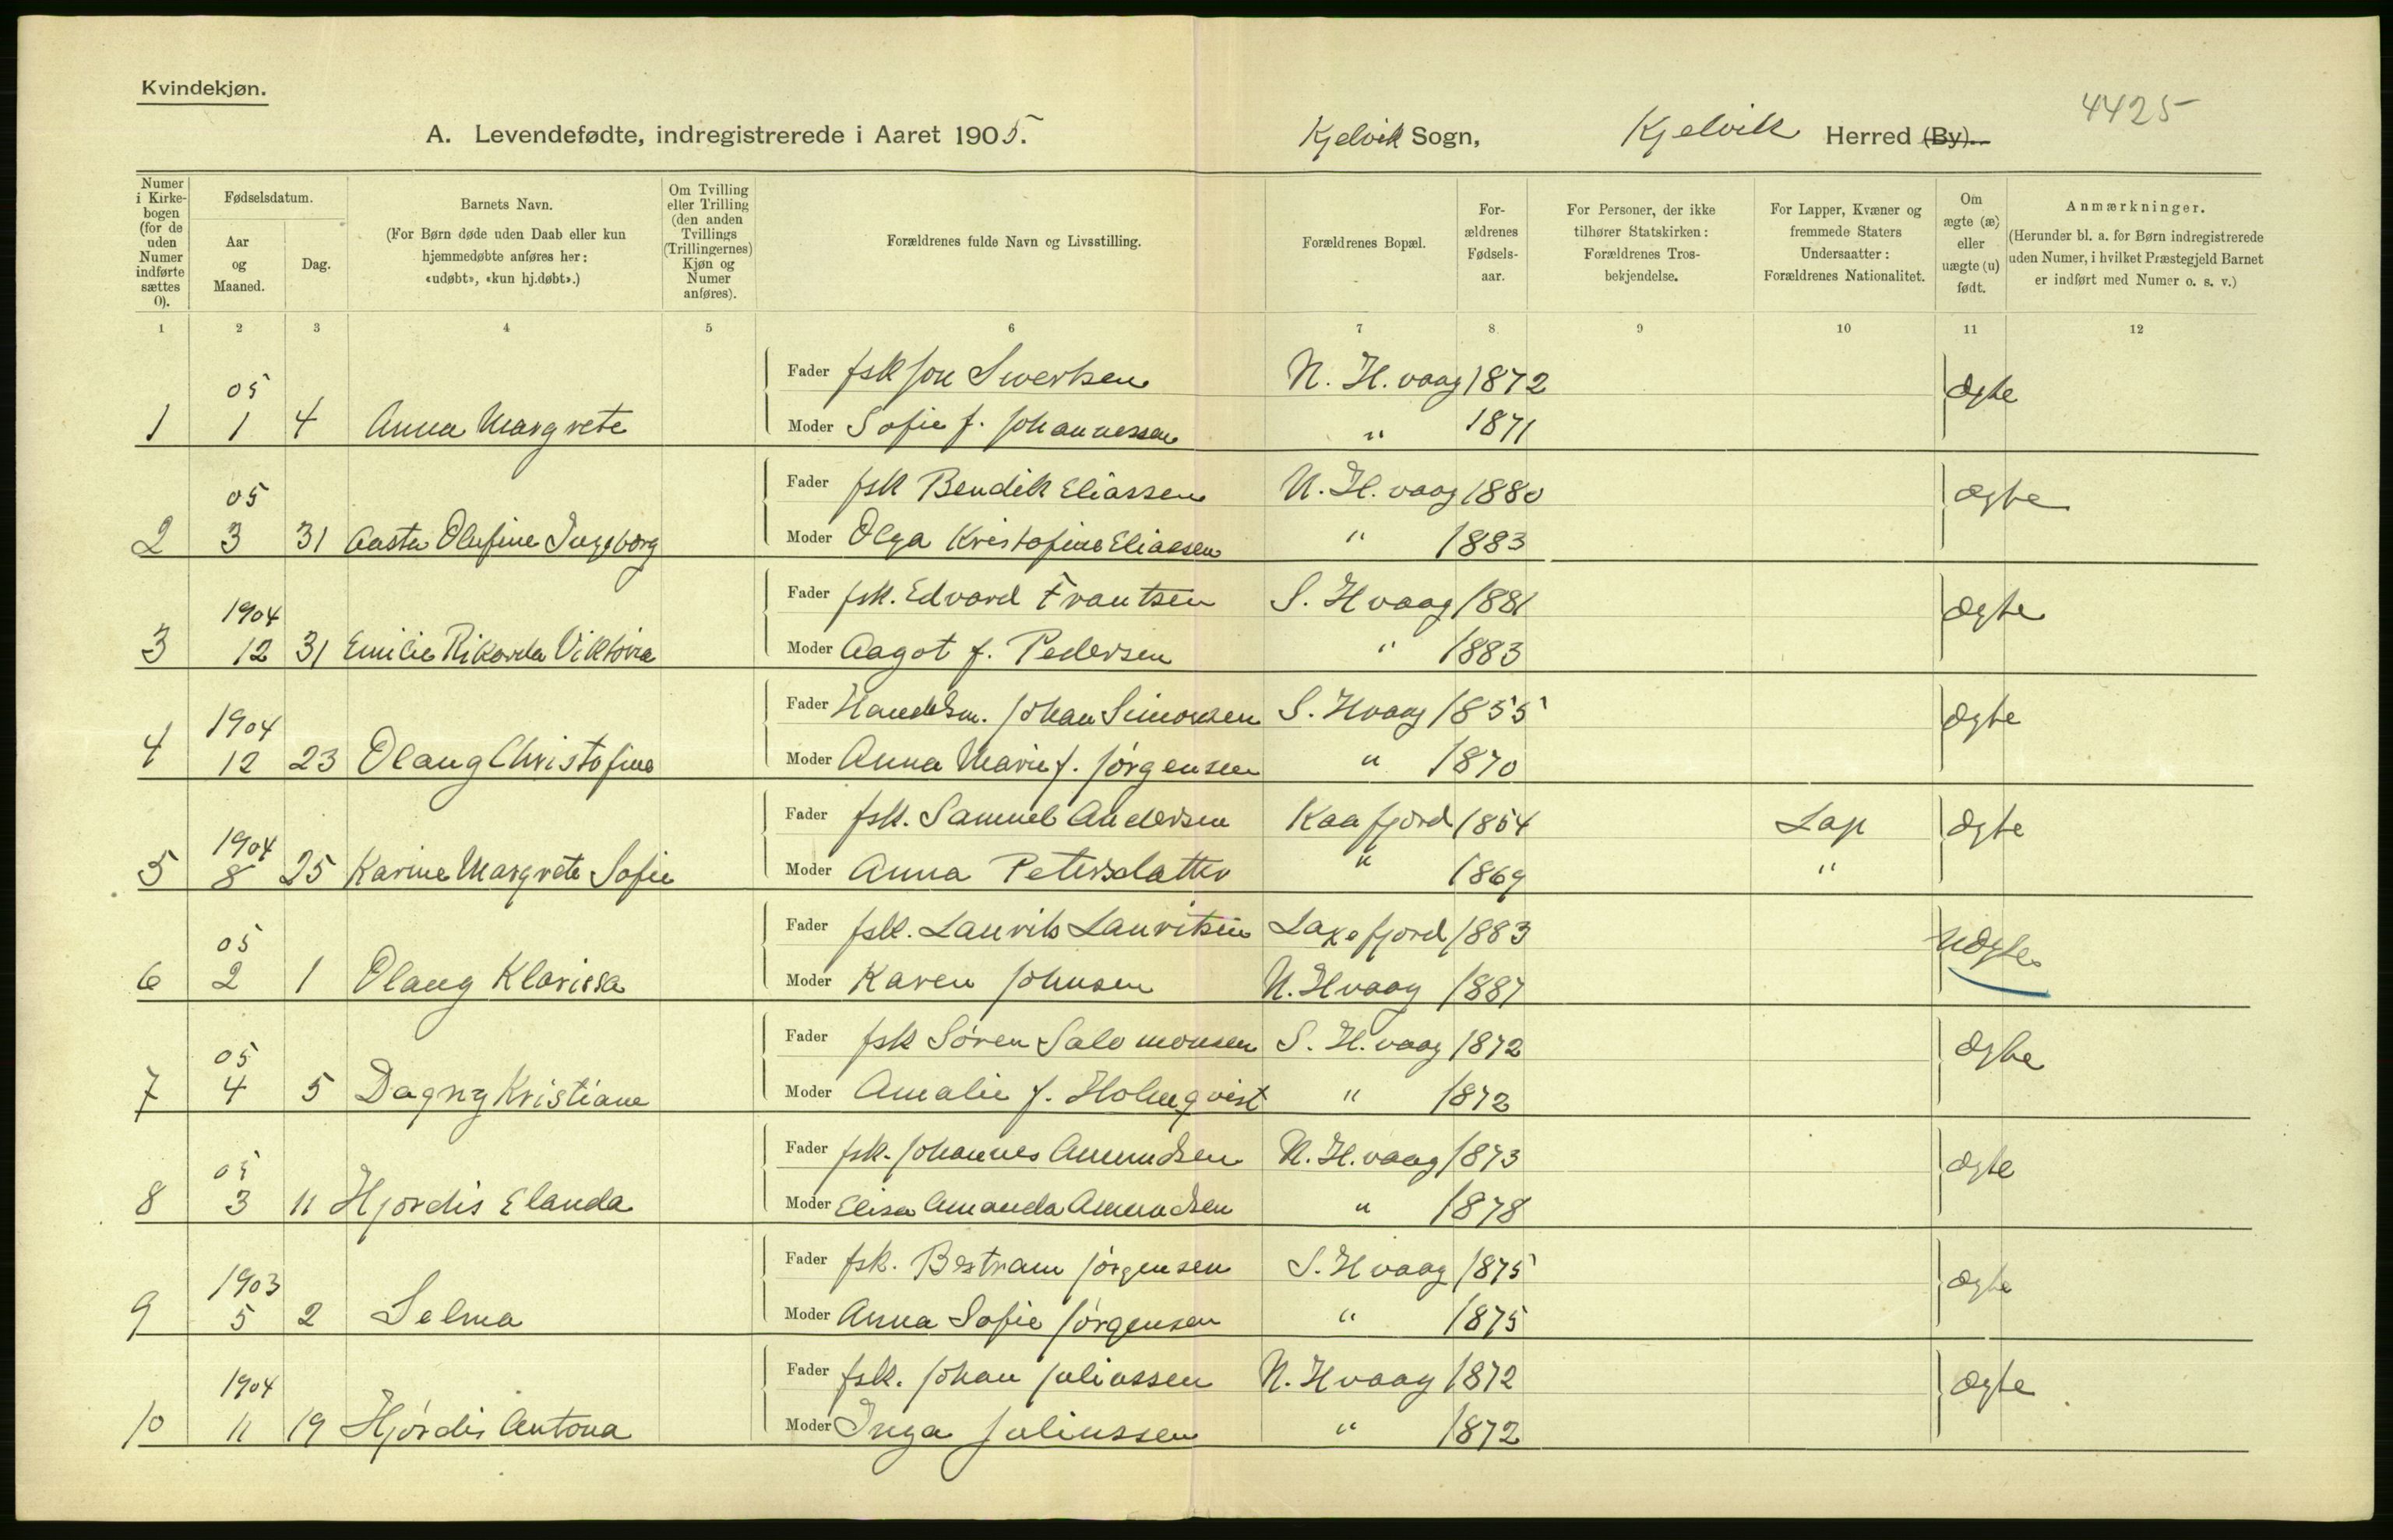 Kvindekjøn.
4425
A. Levendefødte, indregistrerede i Aaret 1905. Kjelvik Sogn, Kjelvik Herred (By).
Numer i Kirkebogen (for de uden Numer indførte sættes 0). Fødselsdatum. Aar og Maaned. Dag. Barnets Navn. (For Børn døde uden Daab eller kun hjemmedøbte anføres her: «udøbt», «kun hj.døbt».) Om Tvilling eller Trilling (den anden Tvillings (Trillingernes) Kjøn og Numer anføres). Forældrenes fulde Navn og Livsstilling. Forældrenes Bopæl. Forældrenes Fødselsaar. For Personer, der ikke tilhører Statskirken: Forældrenes Trosbekjendelse. For Lapper, Kvæner og fremmede Staters Undersaatter: Forældrenes Nationalitet. Om ægte (æ) eller uægte (u) født. Anmærkninger. (Herunder bl. a. for Børn indregistrerede uden Numer, i hvilket Præstegjeld Barnet er indført med Numer o. s. v.)
1 2 3 4 5 6 7 8 9 10 11 12
05 Fader fsk Jon Sivertsen N. H. vaag 1872 Ægte
1 1 4 Anna Margrete Moder Sofie f. Johannessen " 1871
05 Fader fsk Bendik Eliassen N. H. vaag 1880 Ægte
2 3 31 Aasta Olufine Ingeborg Moder Olga Kristofine Eliassen " 1883
1904 Fader fsk. Edvard Frantsen S. H vaag 1881 Ægte
3 12 31 Emilie Rikarda Viktoria Moder Aagot f. Pedersen " 1883
1904 Fader Handelsm. Johan Simonsen S. Hvaag 1855 Ægte
4 12 23 Olaug Christofine Moder Anna Marie f. Jørgensen " 1870
1904 Fader fsk. Samuel Andersen Kaafjord 1854 Lap Ægte
5 8 25 Karine Margrete Sofie Moder Anna Petersdatter " 1869 "
05 Fader fsk. Laurits Lauritsen Laxefjord 1883 Uægte
6 2 1 Olaug Klarissa Moder Karen Johnsen N. Hvaag 1887
05 Fader fsk Søren Salomonsen S. H. vaag 1872 Ægte
7 4 5 Dagny Kristiane Moder Amalie f. Holmqvist " 1872
05 Fader fsk. Johannes Amundsen N. H. vaag 1873 Ægte
8 3 11 Hjørdis Elanda Moder Elisa Amanda Amundsen " 1878
1903 Fader fsk. Bertram Jørgensen S. H vaag 1875 Ægte
9 5 2 Selma Moder Anna Sofie Jørgensen " 1875
1904 Fader fsk. Johan Juliussen N. H vaag 1872 Ægte
10 11 19 Hjørdis Antona Moder Inga Juliussen " 1872